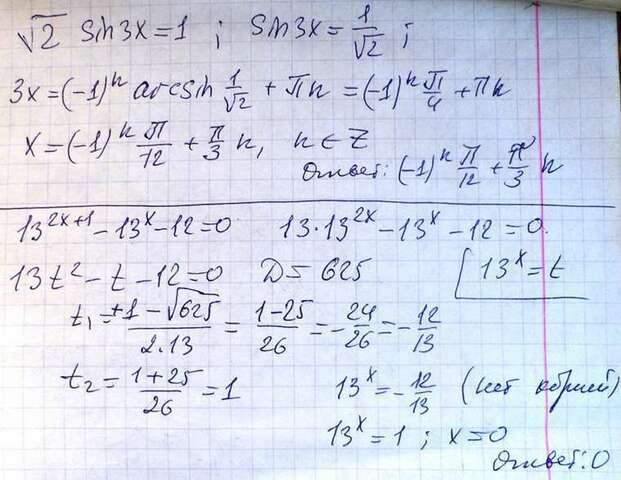 √2 sin3x=1 ; sin3x=1/√2 ;
3x=(-1)^n arcsin 1/√2 + πn = (-1)^n π/4 + πn
x=(-1)^n π/12 + π/3 n, n∈Z
Ответ: (-1)^n π/12 + π/3 n
13^(2x+1) - 13^x - 12 = 0 13·13^(2x) - 13^x - 12 = 0.
13t² - t - 12 = 0 D = 625 [13^x = t
t₁ = (+1-√625)/(2·13) = (1-25)/26 = -24/26 = -12/13
t₂ = (1+25)/26 = 1 13^x = -12/13 (нет корней)
13^x = 1 ; x=0
Ответ: 0